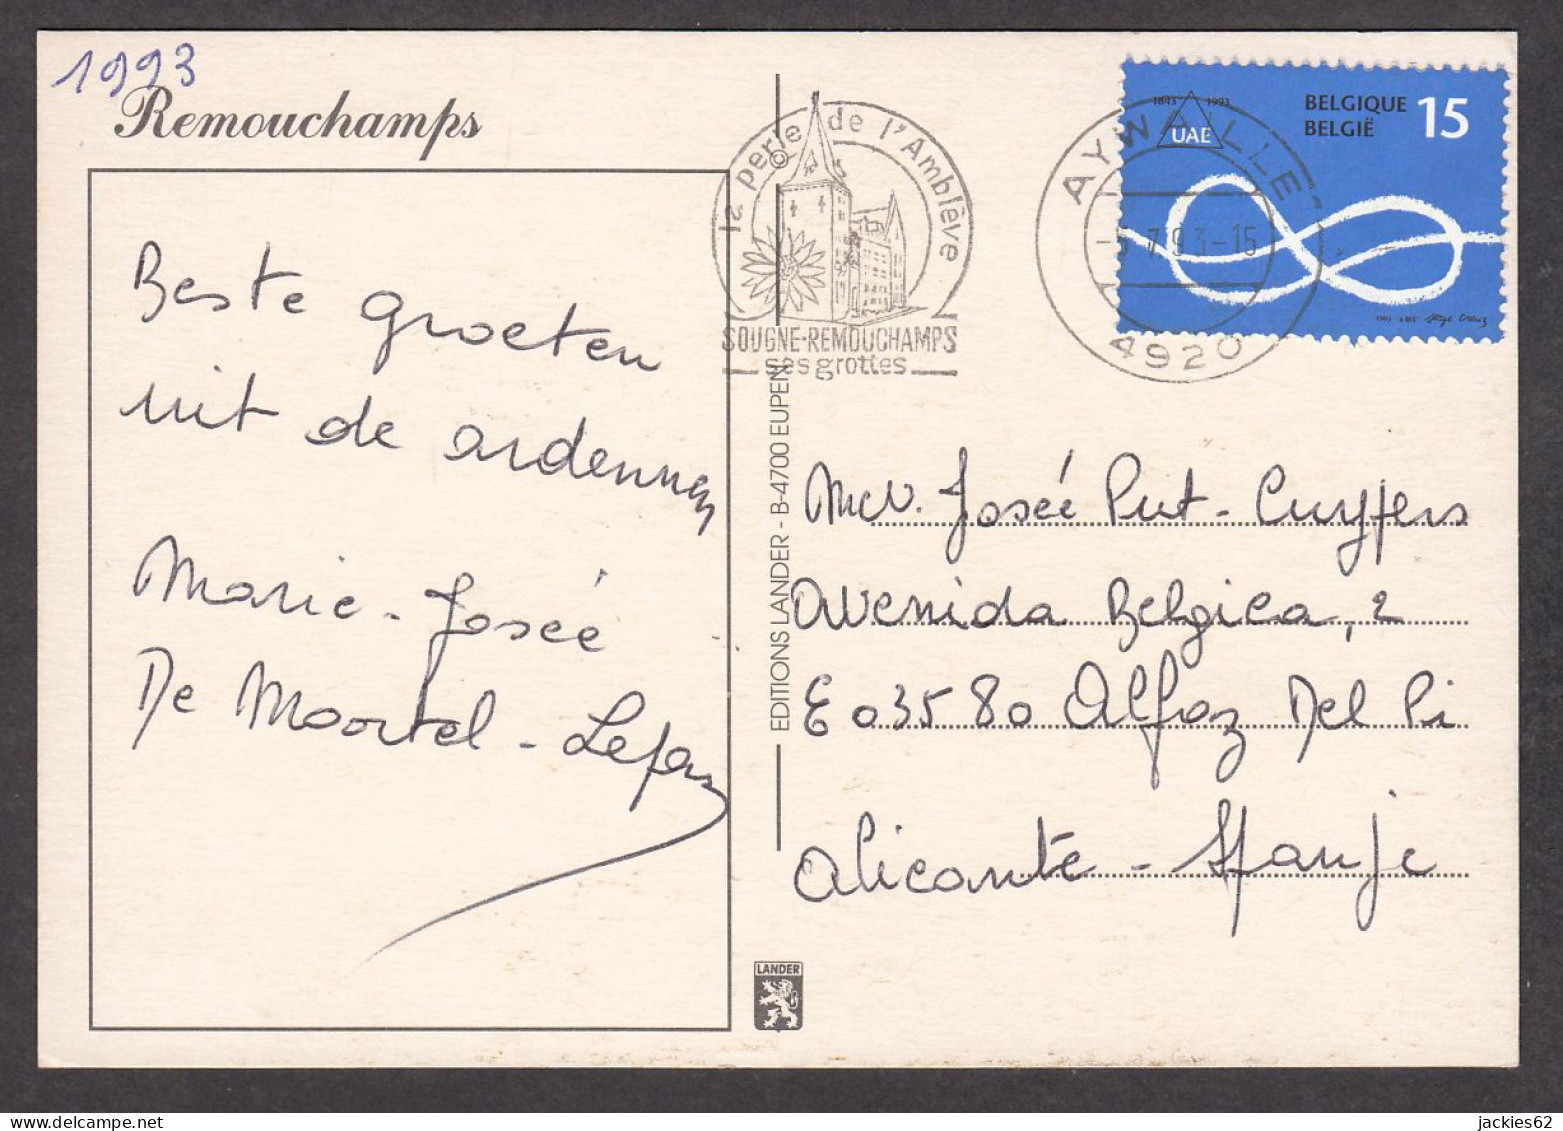 1993
Remouchamps
Beste groeten
uit de ardennen
Marie-Josée
De Mortel - Lefas
la perle de l'Amblève
SOUGNE-REMOUCHAMPS
ses grottes
AYWAILLE
-5-7 93-15
4920
1843 1993
UAE
BELGIQUE
BELGIË
15
©
EDITIONS LANDER - B-4700 EUPEN
Mev. Josée Put-Cuyfers
Avenida Belgica, 2
E 03580 Alfaz Del Pi
Alicante - Spanje
LANDER
jackies62